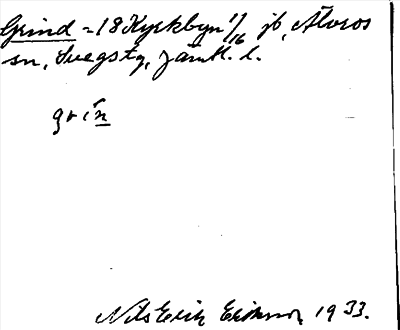 Grind = 18 Kyrkbyn 1/16 jb, Älvros
sn, Svegs tg, Jämtl. l.
grin̲
Nils Erik Eriksson, 1933.